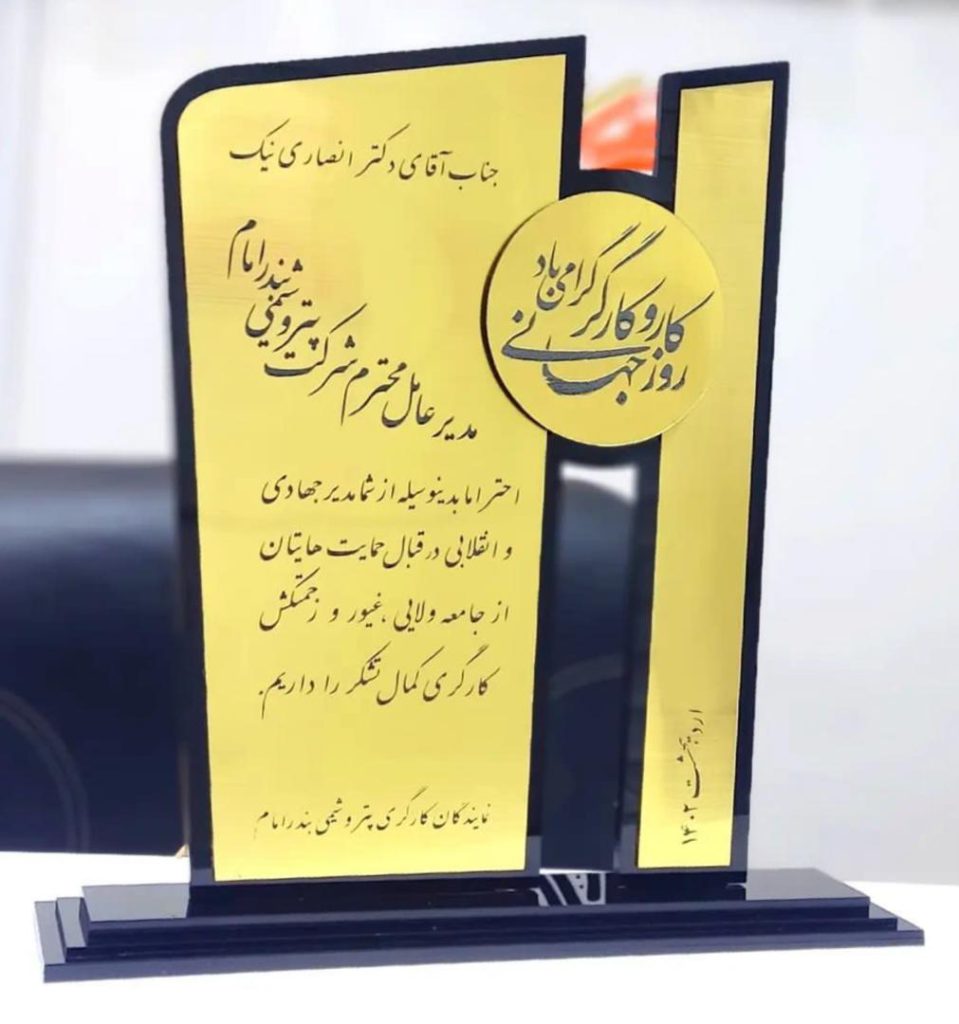 جناب آقای دکتر انصاری نیک
مدیر عامل محترم شرکت پتروشیمی بندر امام
روز جهانی
کار و کارگر گرامی باد
احتراما بدینوسیله از شما مدیر جهادی
و انقلابی در قبال حمایت هایتان
از جامعه ولایی ،غیور و زحمتکش
کارگری کمال تشکر را داریم.
نمایندگان کارگری پتروشیمی بندر امام
اردیبهشت ۱۴۰۲